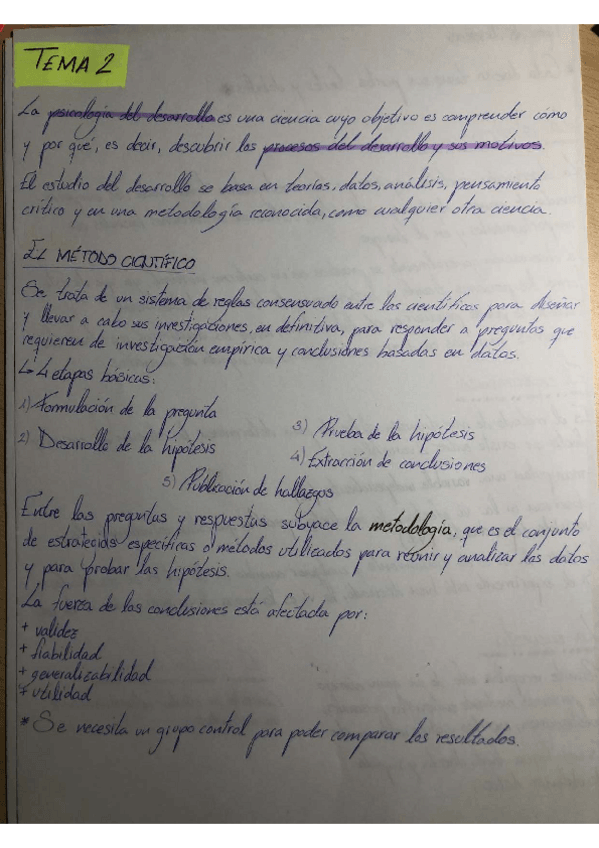 TEMA 2
La psicología del desarrollo es una ciencia cuyo objetivo es comprender cómo
y por qué, es decir, descubrir los procesos del desarrollo y sus motivos.
El estudio del desarrollo se basa en teorías, datos, análisis, pensamiento
crítico y en una metodología reconocida, como cualquier otra ciencia.
EL MÉTODO CIENTÍFICO
Se trata de un sistema de reglas consensuado entre los científicos para diseñar
y llevar a cabo sus investigaciones, en definitiva, para responder a preguntas que
requieren de investigación empírica y conclusiones basadas en datos.
↳ 4 etapas básicas:
1) Formulación de la pregunta
2) Desarrollo de la hipótesis
3) Prueba de la hipótesis
4) Extracción de conclusiones
5) Publicación de hallazgos
Entre las preguntas y respuestas subyace la metodología, que es el conjunto
de estrategias específicas o métodos utilizados para reunir y analizar los datos
y para probar las hipótesis.
La fuerza de las conclusiones está afectada por:
+ validez
+ fiabilidad
+ generalizabilidad
+ utilidad
* Se necesita un grupo control para poder comparar los resultados.